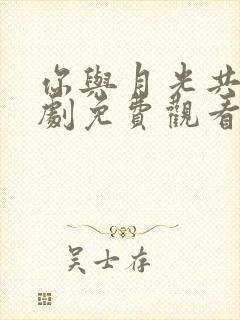 你與月光共
劇免費觀看
吴士存